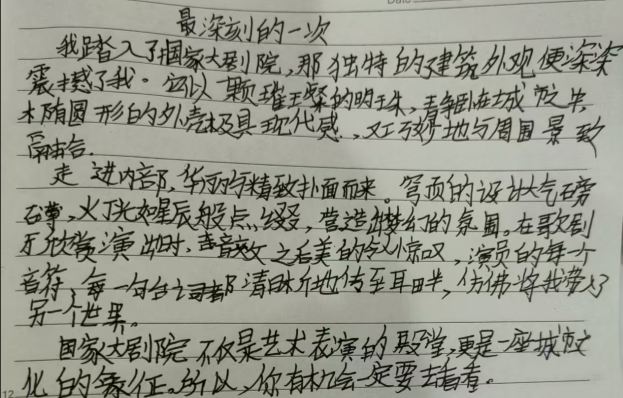 最深刻的一次
我踏入了国家大剧院,那独特的建筑外观便深深
震撼了我。它以一颗璀璨的明珠,静卧在城市中央,
椭圆形的外壳极具现代感,又巧妙地与周围景致
融合.
走进内部,华丽与精致扑面而来。穹顶的设计大气磅
礴,火丁光如星辰般点缀,营造出梦幻的氛围。在歌剧
厅欣赏演出时,声音效之美的令人惊叹,演员的每一个
音符、每一句台词都清晰地传至耳畔,仿佛将我带入了
另一个世界。
国家大剧院不仅是艺术表演的殿堂,更是一座城文
化的象征。所以,你有机会一定要去看看。